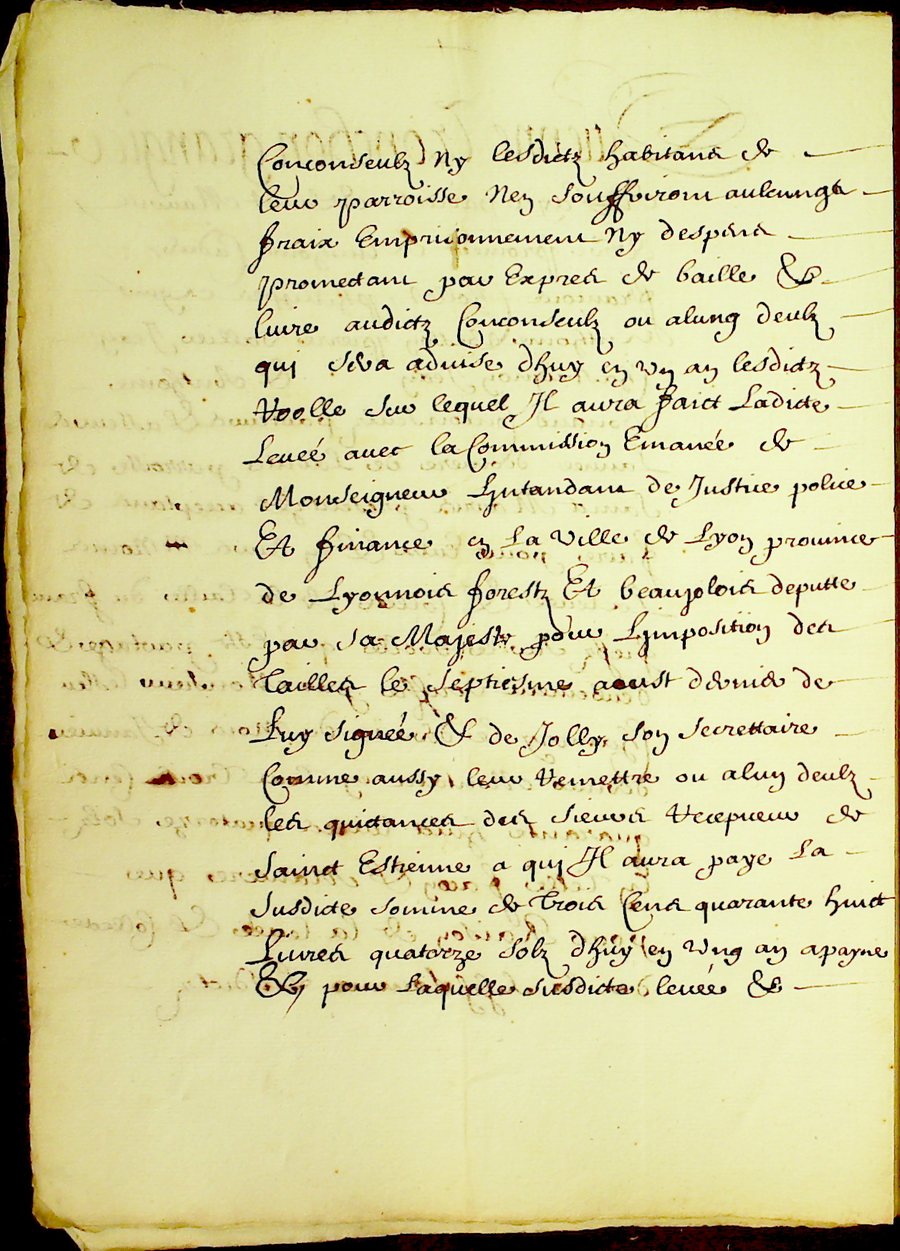 Conconseulz Ny lesdictz habitans de
leur parroisse Nen souffriront aulcungs
fraix Emprisonnement Ny despens
promectant par Expres de baille &
livre audictz Conconseulz ou alung deulz
qui sera advise dhuy en vn an lesdictz
Roolle sur lequel Il aura faict Ladicte
Leveé avec la Commission Emaneé de
Monseigneur Lintandant de Justice police
Et finance en La Ville de Lyon province
de Lyonnois forestz Et beaujolois deputte
par sa Majeste pour Limposition des
Tailles le septiesme aoust dernier de
Luy signeé & de Jolly son secrettaire
Comme aussy leur Remettre ou alun deulz
les quictances des sieurs Recepveur de
Sainct Estienne a qui Il aura paye La
Susdicte somme de Trois Cens quarante huict
Livres quatorze solz dhuy en vng an apayne
& pour Laquelle susdicte leveé &